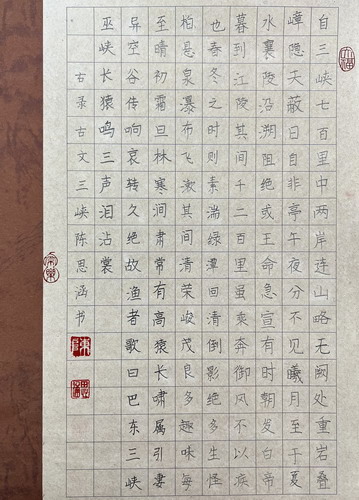 自三峡七百里中两岸连山略无阙处重岩叠
嶂隐天蔽日自非亭午夜分不见曦月至于夏
水襄陵沿溯阻绝或王命急宣有时朝发白帝
暮到江陵其间千二百里虽乘奔御风不以疾
也春冬之时则素湍绿潭回清倒影绝多生怪
柏悬泉瀑布飞漱其间清荣峻茂良多趣味每
至晴初霜旦林寒涧肃常有高猿长啸属引凄
异空谷传响哀转久绝故渔者歌曰巴东三峡
巫峡长猿鸣三声泪沾裳
古录古文三峡陈思涵书